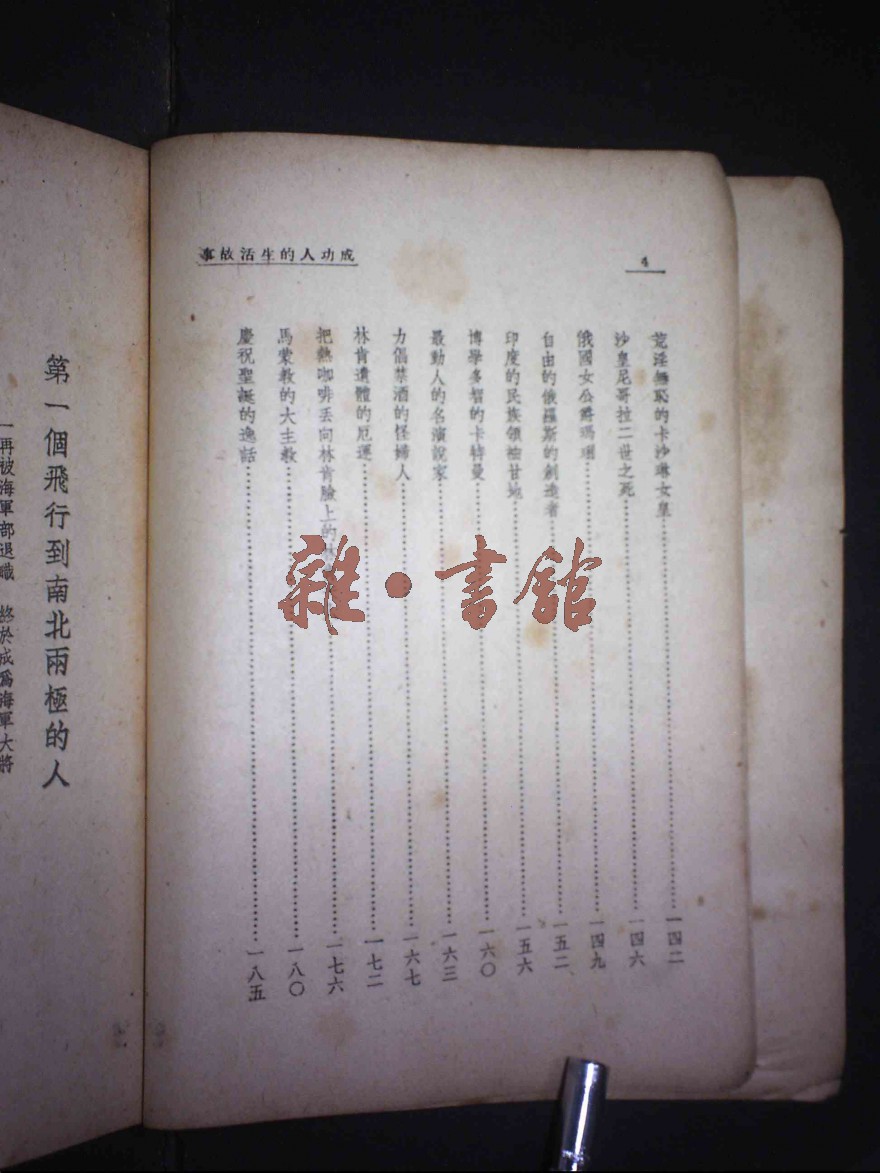 成功人的生活故事
4
荒淫無恥的卡沙琳女皇……一四二
沙皇尼哥拉二世之死……一四六
俄國女公爵瑪琍……一四九
自由的俄羅斯的創造者……一五二
印度的民族領袖甘地……一五六
博學多智的卡特曼……一六〇
最動人的名演說家……一六三
力倡禁酒的怪婦人……一六七
林肯遺體的厄運……一七二
把熱咖啡丟向林肯臉上的……一七六
馬蒙教的大主教……一八〇
慶祝聖誕的逸話……一八五
第一個飛行到南北兩極的人
一再被海軍部退職 終於成爲海軍大將
雜·書館